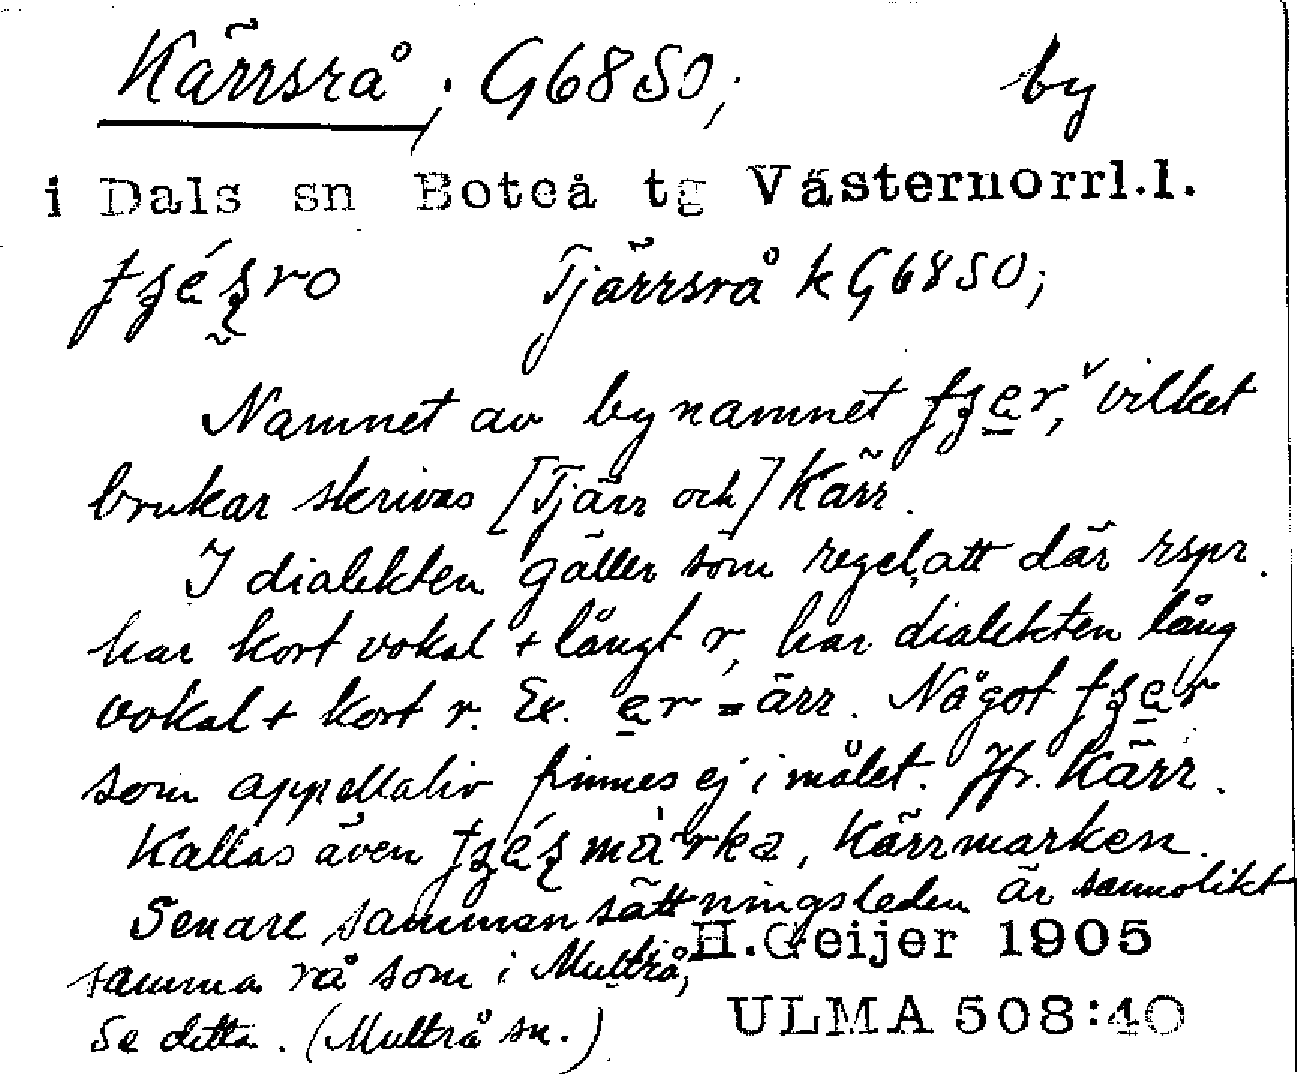 Kärrsrå; G6850; by
i Dals sn Boteå tg Västernorrl.l.
Tjärrsrå k G6850;
Namnet av bynamnet vilket
brukar skrivas [Tjärr och] Kärr.
I dialekten gäller som regel, att där rspr.
har kort vokal + långt r, har dialekten lång
vokal + kort r. Ex. er = ärr. Något
som appellativ finnes ej i målet. Jfr. Kärr.
Kallas även Kärrmarken.
Senare sammansättningsleden är sannolikt
samma rå som i Multrå,
Se detta. (Multrå sn.)
H.Geijer 1905
ULMA 508:40